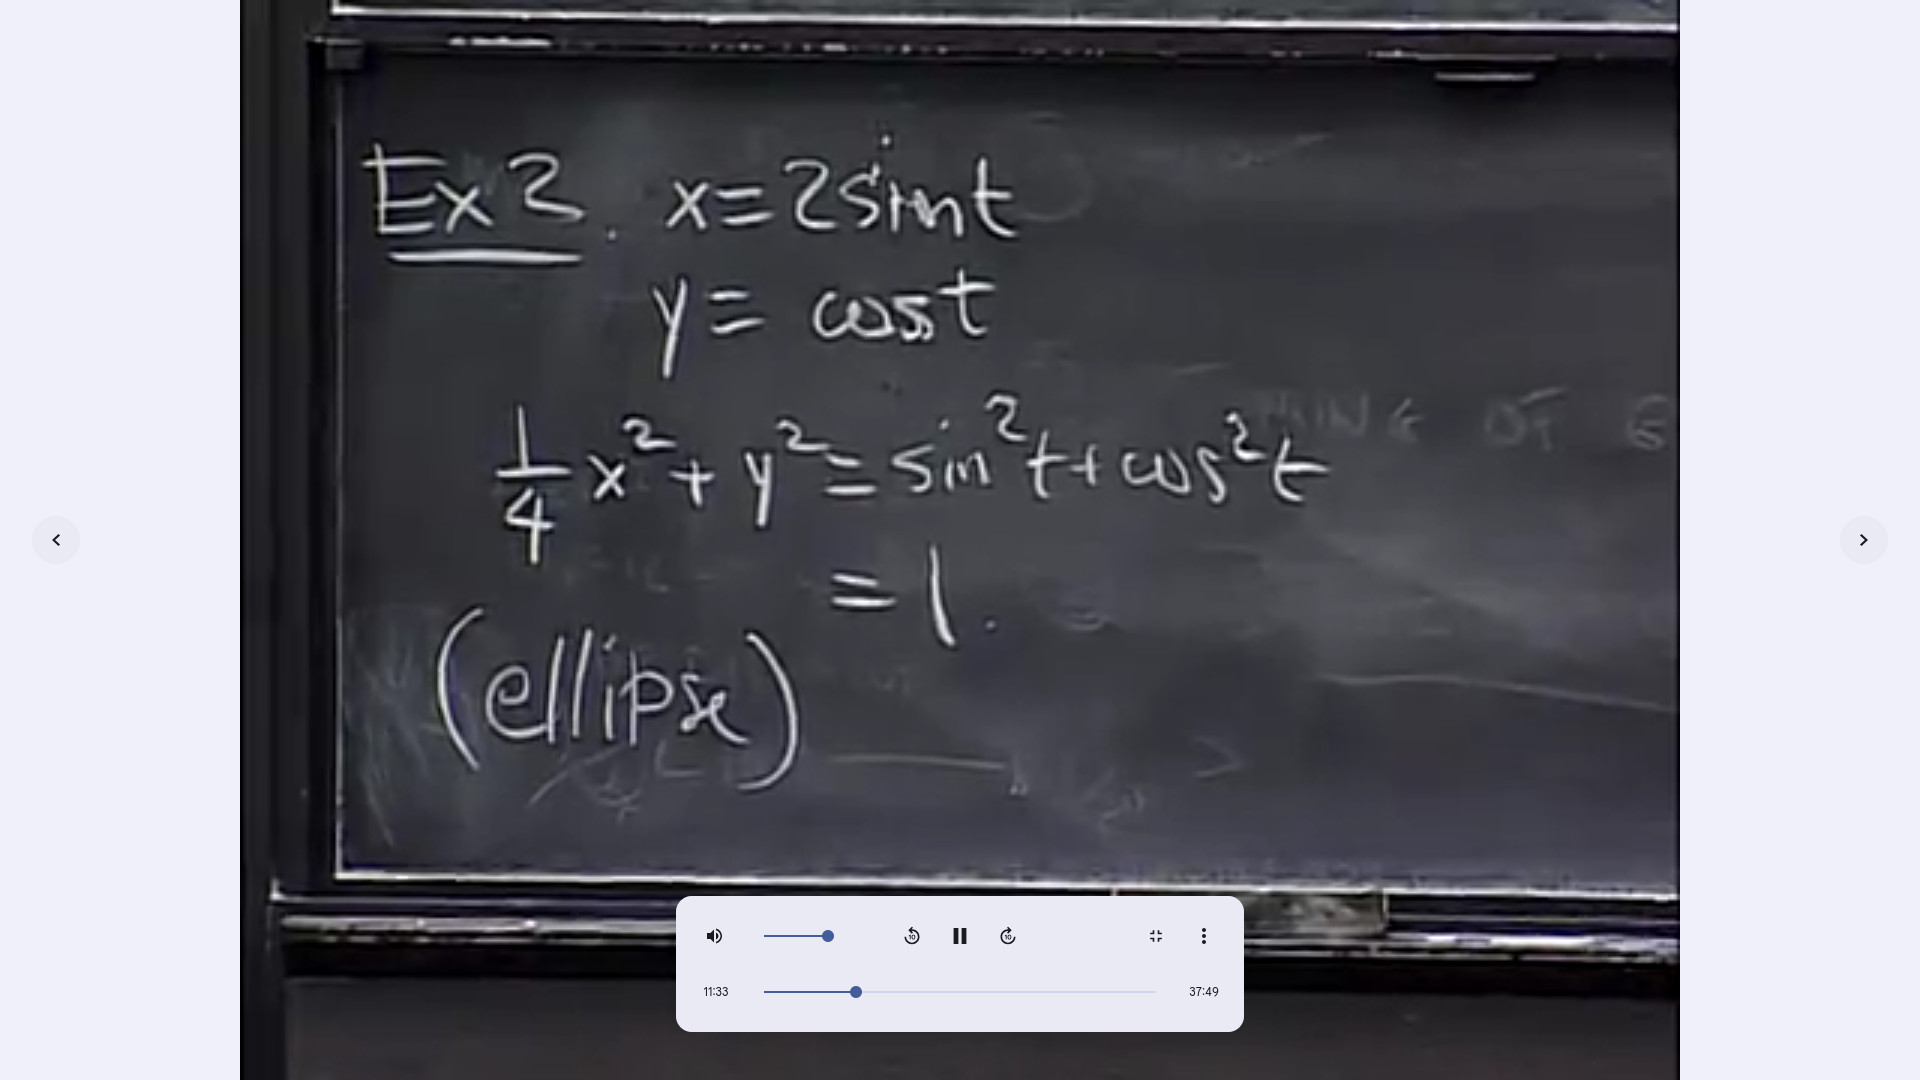 Ex 2. x = 2 sin t
y = cos t
1/4 x² + y² = sin² t + cos² t
= 1.
(ellipse)
10
10
11:33
37:49